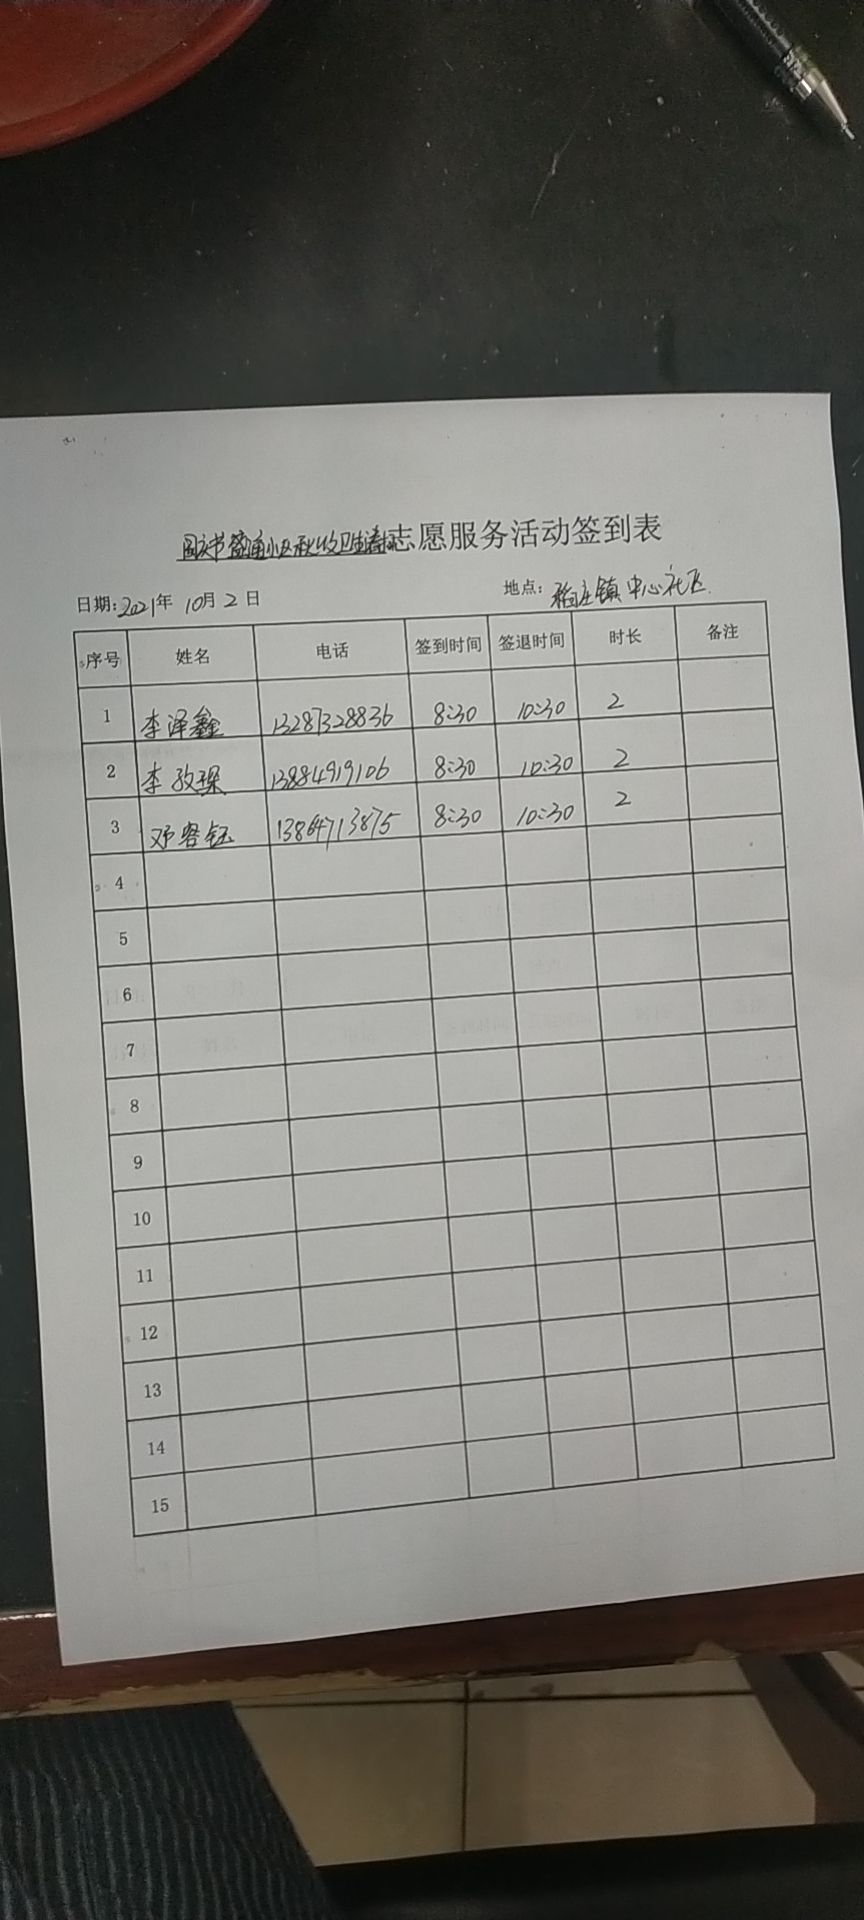 国庆节 小区秋收卫生清扫志愿服务活动签到表
日期:2021年 10月2日 地点: 稻庄镇中心社区
序号 姓名 电话 签到时间 签退时间 时长 备注
1 李泽鑫 13287328836 8:30 10:30 2
2 李孜琛 13884919106 8:30 10:30 2
3 邓容钰 13864713875 8:30 10:30 2
4
5
6
7
8
9
10
11
12
13
14
15